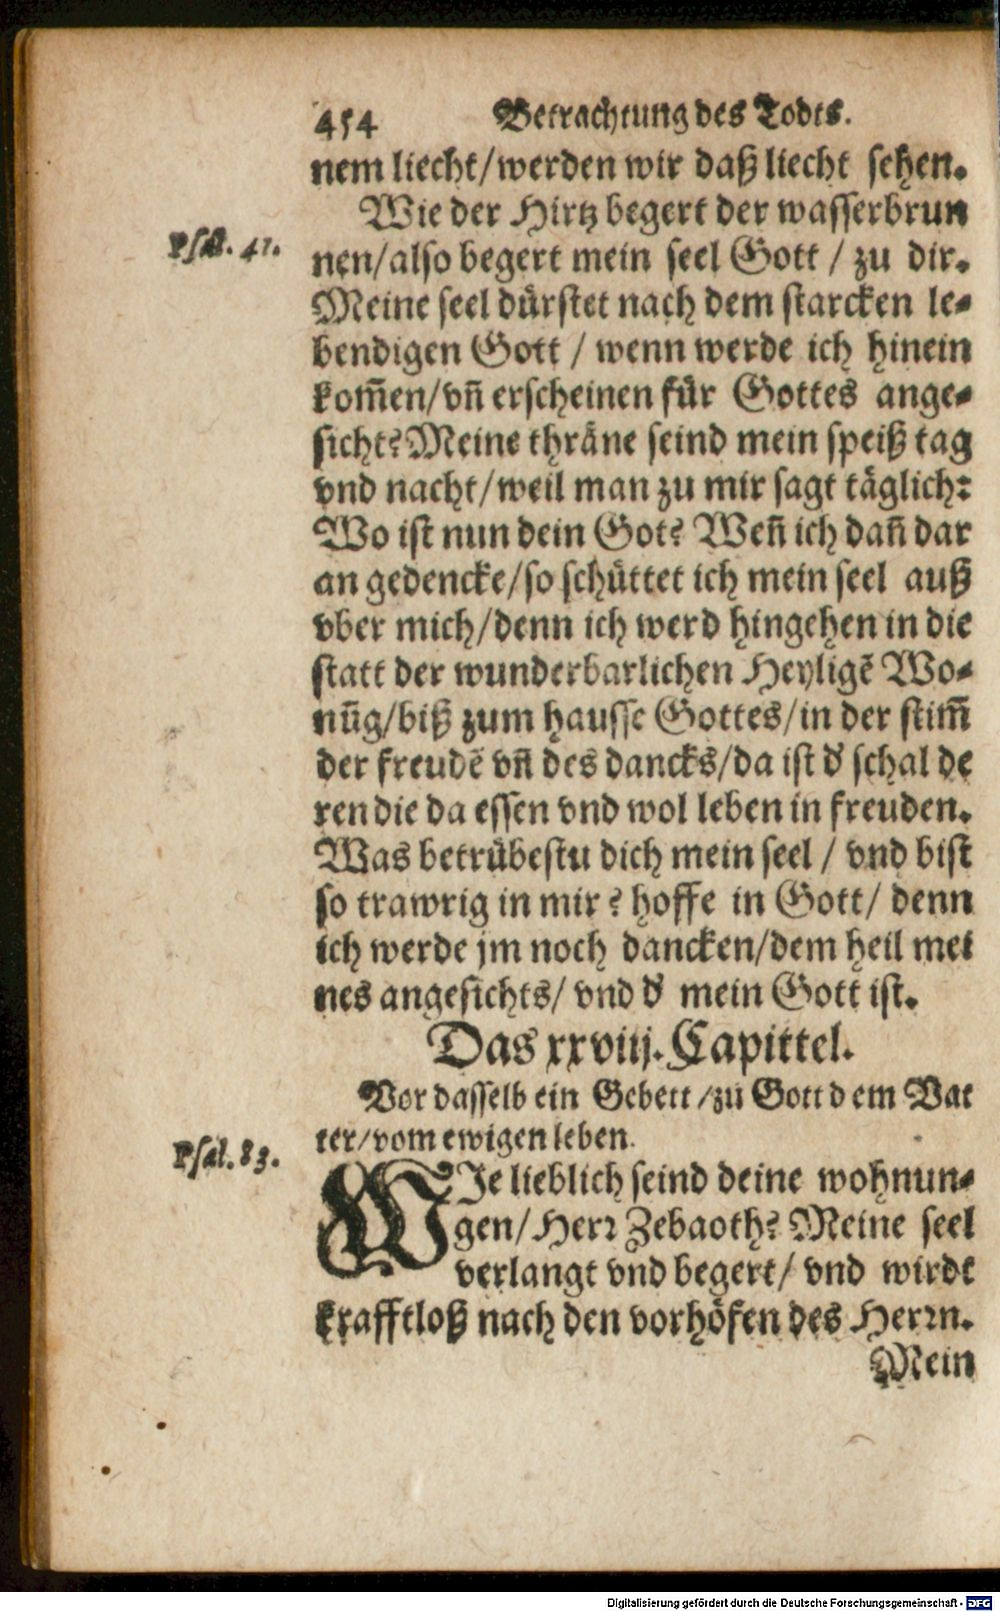 454 Betrachtung des Todts.
nem liecht/werden wir daß liecht sehen.
Wie der Hirtz begert der wasserbrun
Psal. 41.
nen/also begert mein seel Gott / zu dir.
Meine seel dürstet nach dem starcken le-
bendigen Gott / wenn werde ich hinein
kom̃en/vñ erscheinen für Gottes ange-
sicht? Meine thräne seind mein speiß tag
vnd nacht/weil man zu mir sagt täglich:
Wo ist nun dein Got? Weñ ich dañ dar
an gedencke/so schüttet ich mein seel auß
vber mich/denn ich werd hingehen in die
statt der wunderbarlichen Heyligẽ Wo-
nũg/biß zum hausse Gottes/in der stim̃
der freudẽ vñ des dancks/da ist d' schal de
ren die da essen vnd wol leben in freuden.
Was betrübestu dich mein seel / vnd bist
so trawrig in mir? hoffe in Gott/ denn
ich werde jm noch dancken/dem heil mei
nes angesichts/ vnd d' mein Gott ist.
Das xxviij. Capittel.
Vor dasselb ein Gebett /zu Gott dem Vat
ter/vom ewigen leben.
Psal. 83.
WJe lieblich seind deine wohnun-
gen/ Herr Zebaoth? Meine seel
verlangt vnd begert/ vnd wirdt
krafftloß nach den vorhöfen des Herrn.
Mein
Digitalisierung gefördert durch die Deutsche Forschungsgemeinschaft - DFG